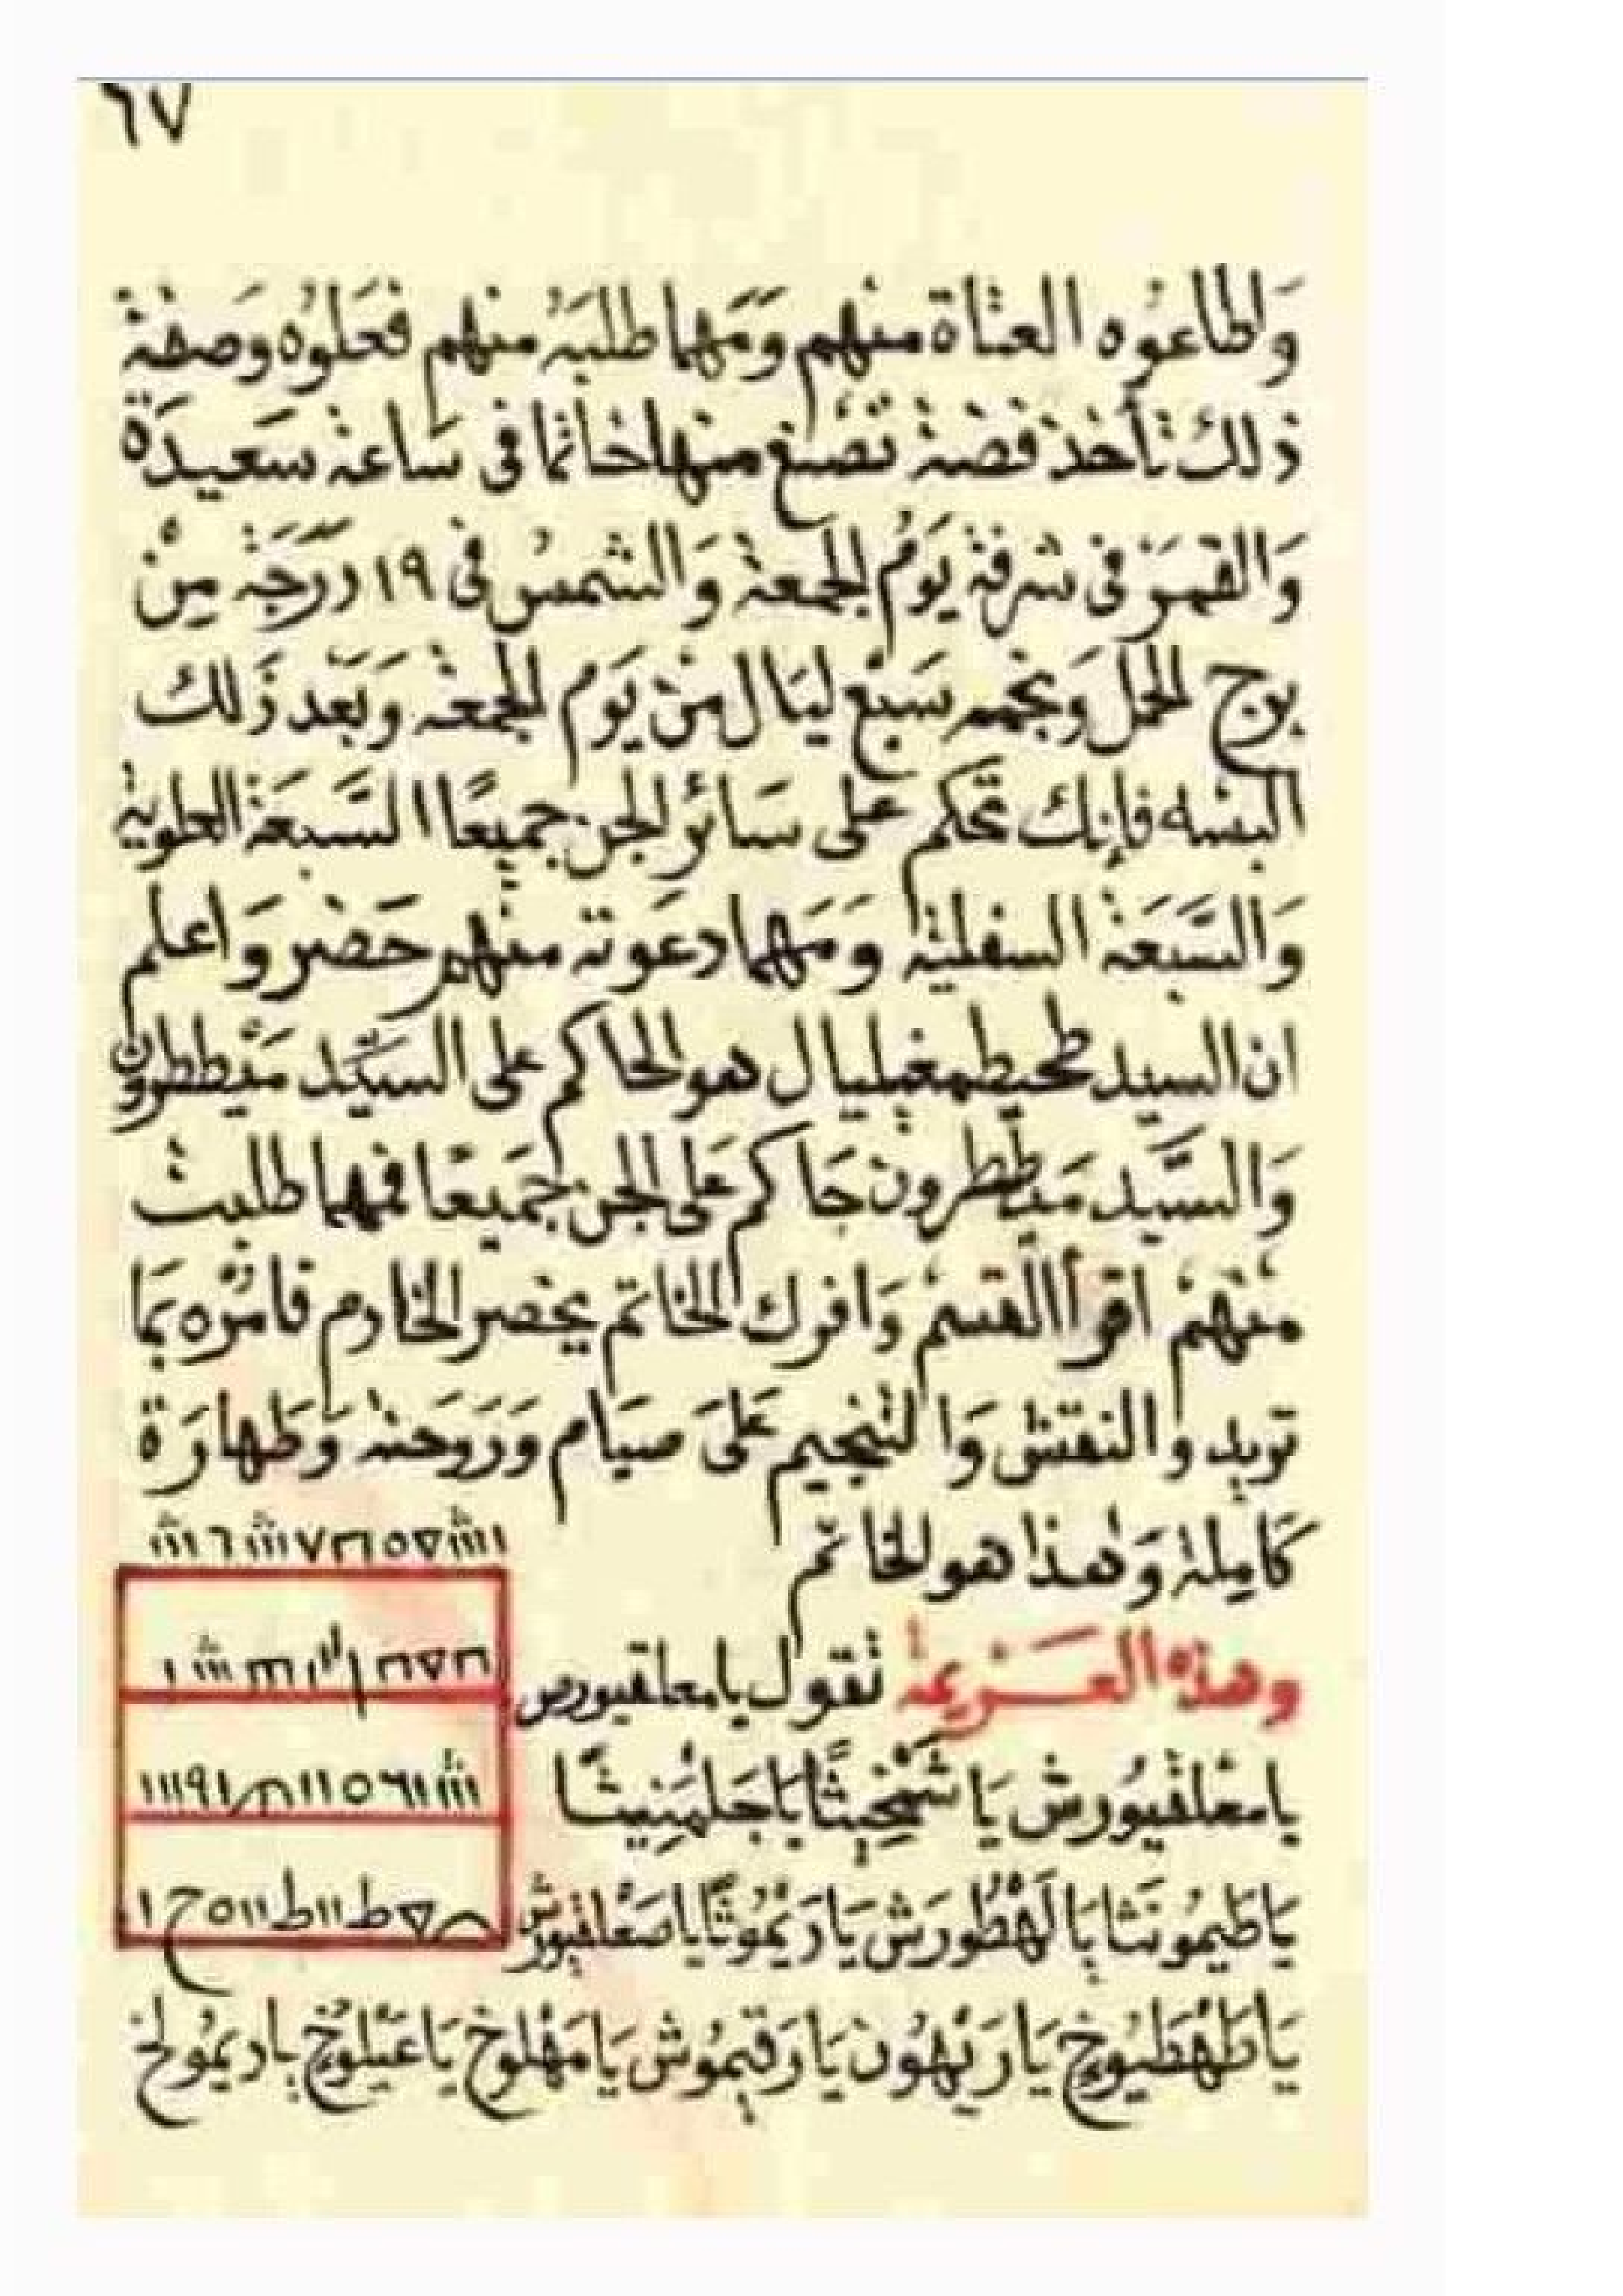 ٦٧
وَلطاعوُه العتاة منهم وَمَهما طلبَهُ منهم فعَلوُه وَصفة
ذلك تأخذ فضة تصنع منها خاتما في سَاعة سَعيدَة
وَالقمرَ في شرفة يَوْم الجمعة وَالشمسُ في ١٩ درَجَة مِنْ
برج الحمل وَبخمه سَبْع ليَال منْ يَوم الجمعة وَبَعد ذَلك
البسْه فإنك تحكم على سَائر الجن جميعًا السَّبعَة العلوية
وَالسَّبعَة السفلية وَمَهما دعوته منهم حَضر وَاعلم
ان السيد طحيطمغيليال هو الحاكم على السيّد ميْططرون
وَالسَّيد ميَططرون حَاكم عَلى الجن جَميعًا فمهما طلبت
منهمْ اقرأ القسمْ وَافرك الخاتم يحضر الخادم فامرْه بمَا
تريد والنقش وَالتنجيم عَلىَ صيَام وَرَوحَنه وَطهارَة
كَامِلة وَهذا هو الخاتم
وهذه العَزيمة تقول يا معلقيورص
يا معْلقيوُرش يَا شمْخِيثًا يا جَلمَنِيثًا
يَا طيموُنَثا يَا لَهْطُورَش يَا رَيموُثًا يا صَعْلقيورش
يَا طَهْطَيُوخ يَا رَيهُون يَا رَقيموُش يَا مَهْلوخ يَا عَيْلوُخ يا ريمُولخ